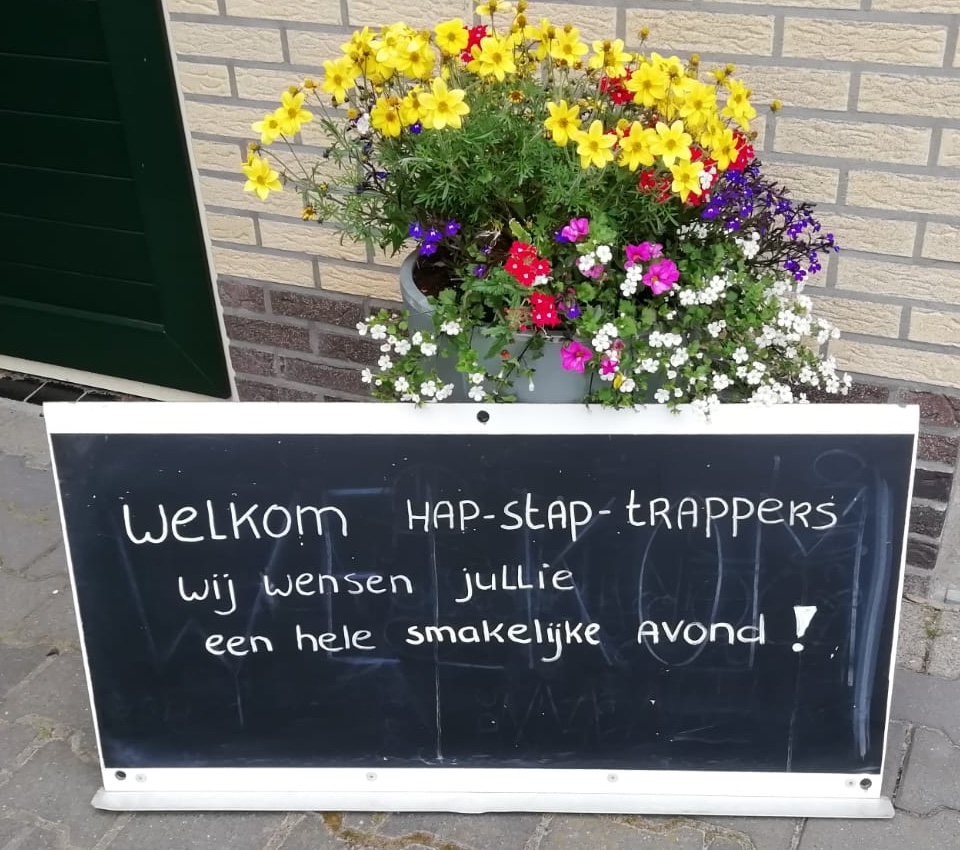 Welkom HAP-stAp-tRAppeRs
wij wensen jullie
een hele smakelijke Avond !